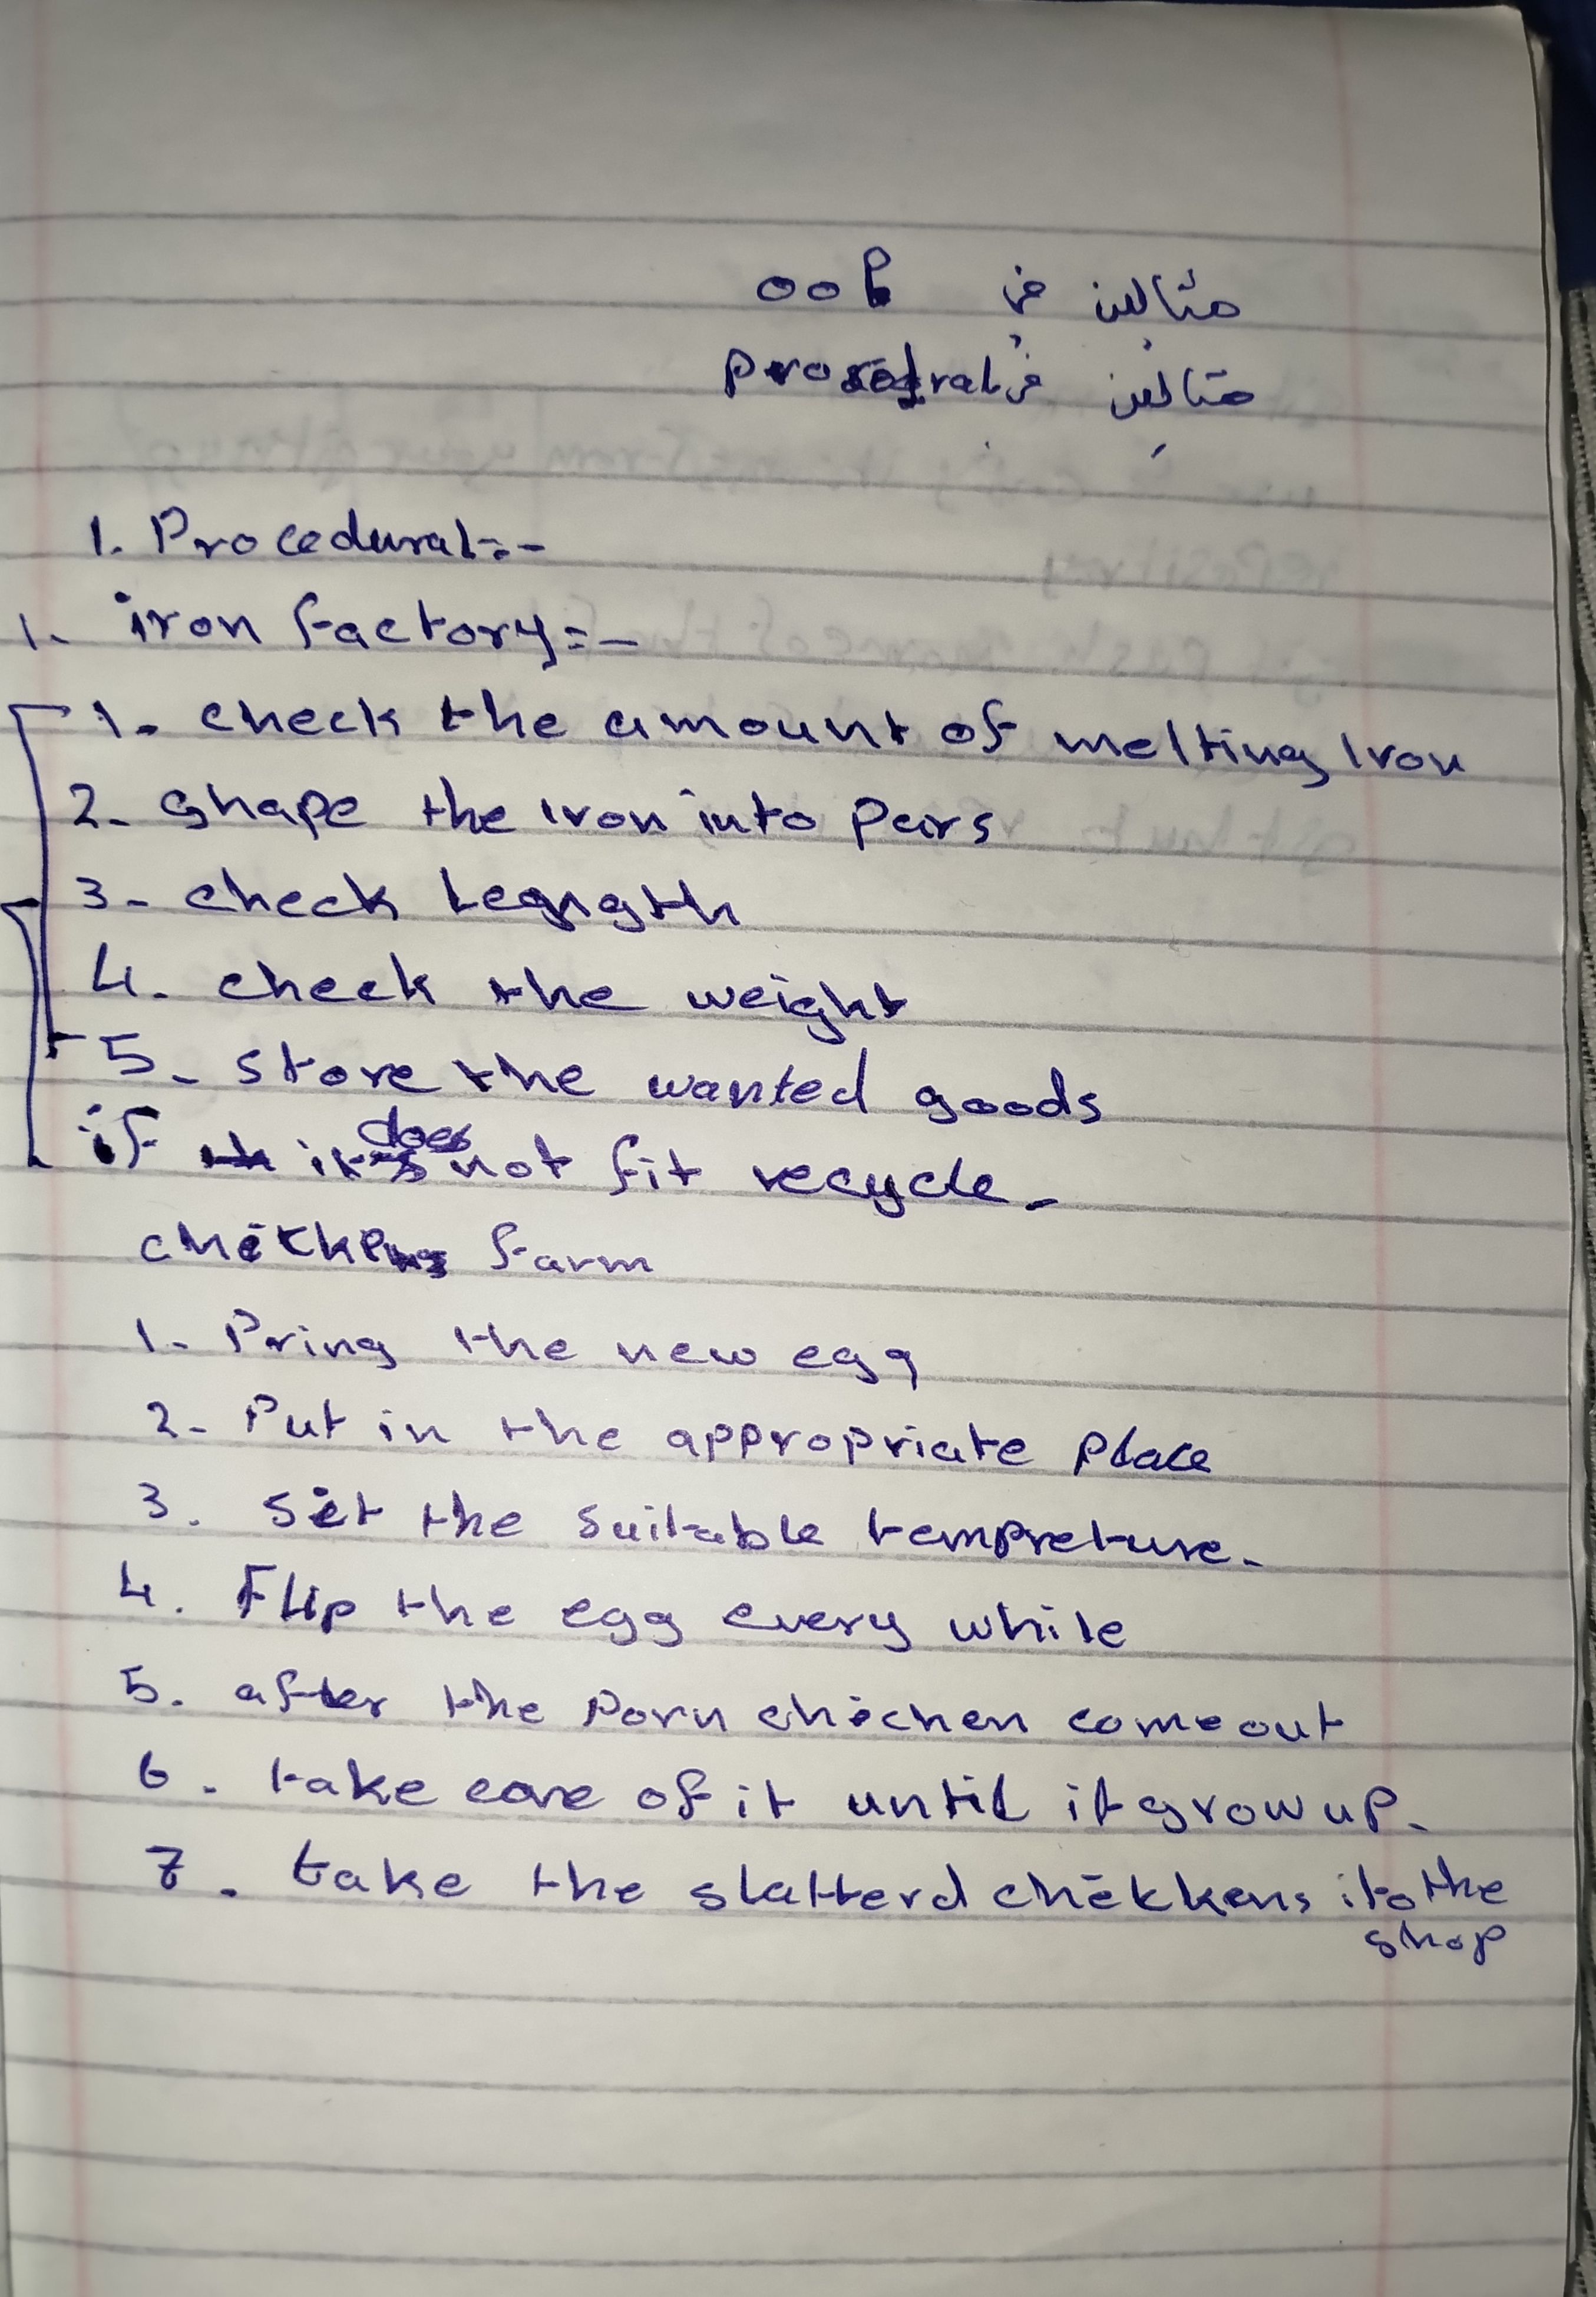 مثالين في OOP
مثالين في
1. Procedural:-
1. iron factory:-
1- check the amount of melting iron
2- shape the iron into pairs
3- check legngth
4. check the weight
5- store the wanted goods
if it does not fit recycle-
farm
1- Pring the new egg
2- Put in the appropriate place
3. Set the suitable tempreture.
4. Flip the egg every while
5. after the Porn chichen come out
6. take care of it until it grow up.
7. take the slatterd chekkens ito the
shop